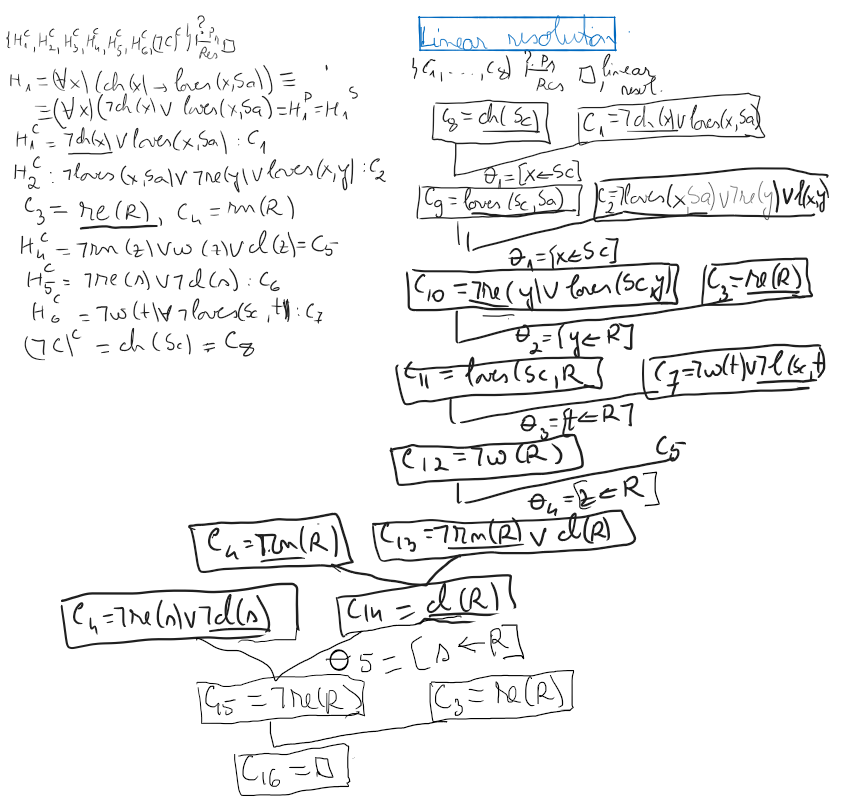 {H₁ᶜ, H₂ᶜ, H₃ᶜ, H₄ᶜ, H₅ᶜ, H₆ᶜ, (¬C)ᶜ} ⊢? Pr Res □
H₁ = (∀x)(ch(x) → loves(x,Sa)) ≡
≡ (∀x)(¬ch(x) ∨ loves(x,Sa) = H₁ᴾ = H₁ˢ
H₁ᶜ = ¬ch(x) ∨ loves(x,Sa) : C₁
H₂ᶜ : ¬loves(x,Sa) ∨ ¬re(y) ∨ loves(x,y) : C₂
C₃ = re(R), C₄ = rn(R)
H₄ᶜ = ¬rn(z) ∨ w(z) ∨ cl(z) = C₅
H₅ᶜ = ¬re(s) ∨ ¬cl(s) : C₆
H₆ᶜ = ¬w(t) ∨ ¬loves(Sc,t) : C₇
(¬C)ᶜ = ch(Sc) = C₈
Linear resolution
{C₁, ..., C₈} ⊢? Pr Res □, linear
resol.
C₈ = ch(Sc) C₁ = ¬ch(x) ∨ loves(x,Sa)
θ₁ = [x ← Sc]
C₉ = loves(Sc,Sa) C₂ = ¬loves(x,Sa) ∨ ¬re(y) ∨ l(x,y)
θ₁ = [x ← Sc]
C₁₀ = ¬re(y) ∨ loves(Sc,y) C₃ = re(R)
θ₂ = [y ← R]
C₁₁ = loves(Sc,R C₇ = ¬w(t) ∨ ¬l(Sc,t)
θ₃ = [t ← R]
C₁₂ = ¬w(R) C₅
θ₄ = [z ← R]
C₄ = rn(R) C₁₃ = ¬rn(R) ∨ cl(R)
C₄ = ¬re(s) ∨ ¬cl(s) C₁₄ = cl(R)
θ5 = [s ← R]
C₁₅ = ¬re(R) C₃ = re(R)
C₁₆ = □